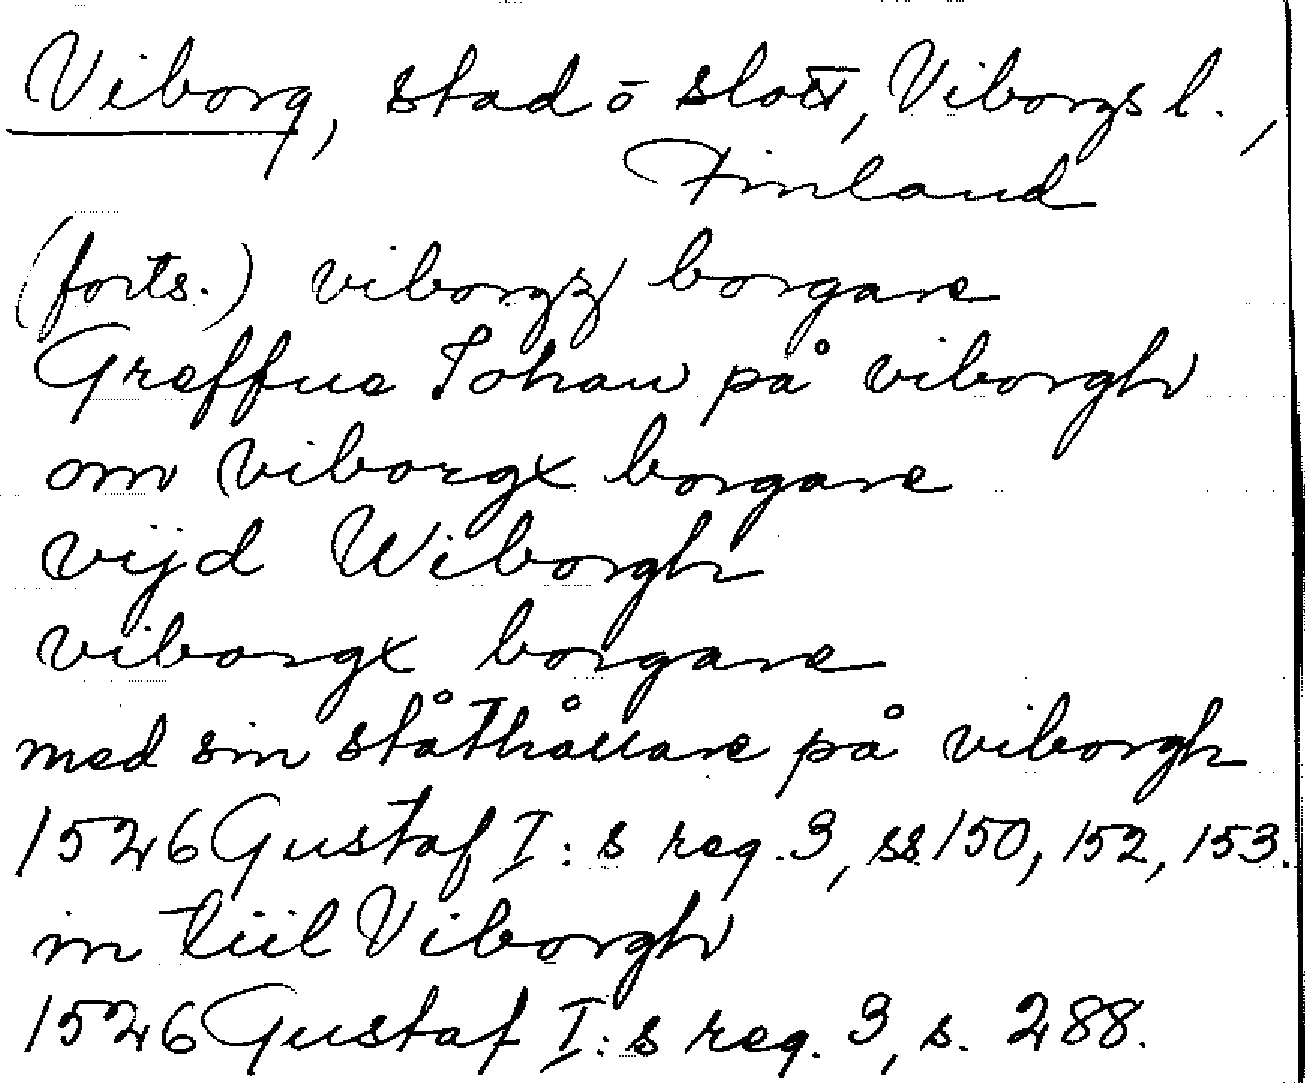 Viborg, stad o slott, Viborgs l.,
Finland
(forts.) viborgz borgare
Greffue Johan på viborgh
om viborgx borgare
vijd Wiborgh
viborgx borgare
med sin ståthållare på viborgh
1526 Gustaf I:s reg. 3, ss 150, 152, 153.
in tiil Viborgh
1526 Gustaf I:s reg. 3, s. 288.